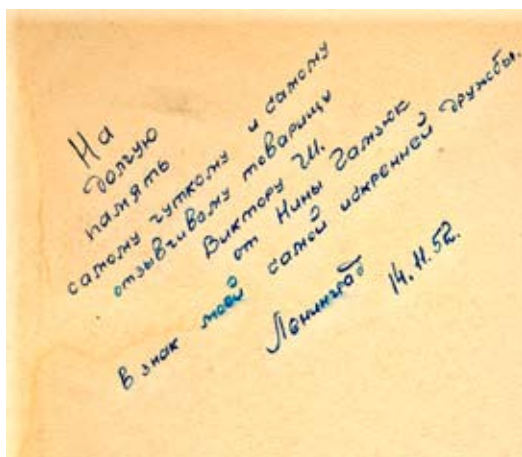 На
долгую
память
самому чуткому и самому
отзывчивому товарищу
Виктору Ш.
от Нины Гамзюк
в знак моей самой искренней дружбы.
Ленинград 14.11.52.